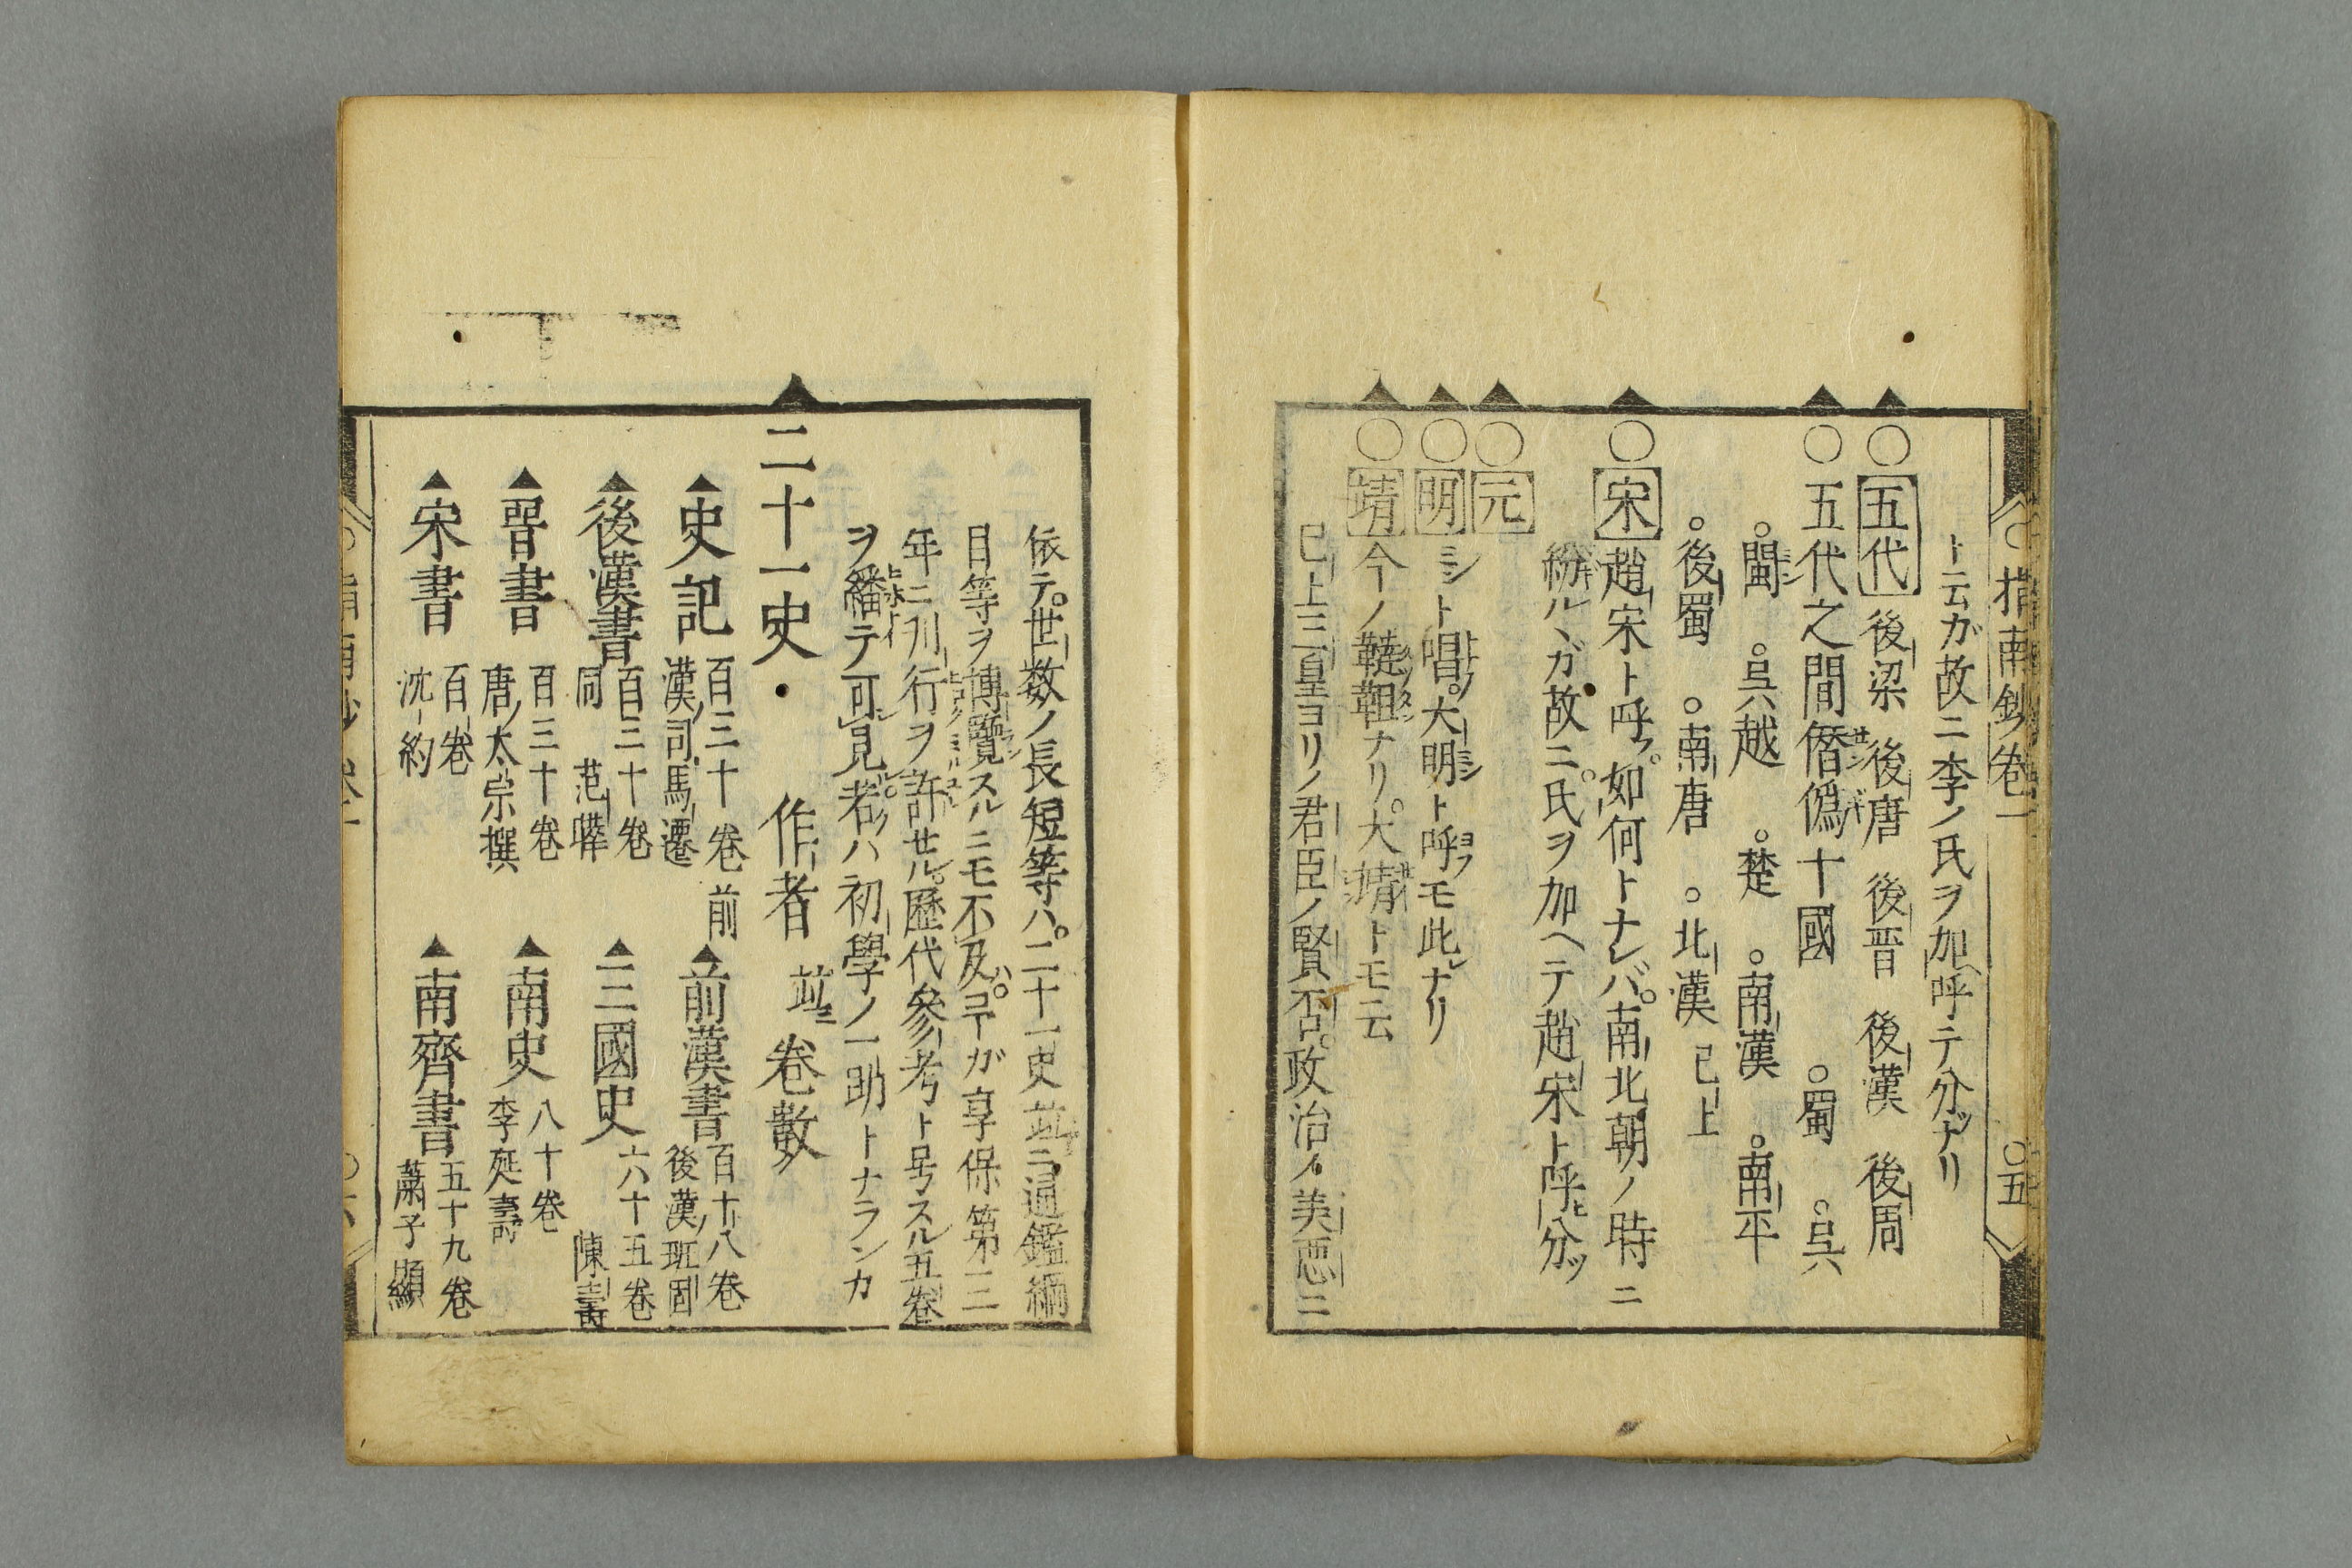 指南鈔卷一　〇五
ト云ガ故ニ李ノ氏ヲ加ヘ呼テ分ツナリ
〇五代　後梁　後唐　後晋　後漢　後周
〇五代之間僭偽十國　〇蜀　〇呉
〇閩　〇呉越　〇楚　〇南漢　〇南平
〇後蜀　〇南唐　〇北漢　已上
〇宋　趙宋ト呼フ。如何トナレバ。南北朝ノ時ニ
紛ルヽガ故ニ。氏ヲ加ヘテ趙宋ト呼ヒ分ツ
〇元
〇明　ミント唱フ。大明ト呼フモ此レナリ
〇靖　今ノ韃靼ナリ。大靖トモ云
已上三皇ヨリノ君臣ノ賢否。政治ノ美悪ニ
依テ。世数ノ長短等ハ。二十一史並ニ通鑑綱
目等ヲ博覽スルニモ不及ハ。コヿガ享保第三
年ニ刋行ヲ許セル。歴代參考ト号スル五巻
ヲ繙テ可見。若ハ初學ノ一助トナランカ
二十一史　作者並ニ卷數
史記　百三十卷　前漢ノ司馬遷
前漢書　百十八卷　後漢ノ班固
後漢書　百三十卷　同　范曄
三國史　六十五卷　陳壽
晋書　百三十卷　唐ノ太宗撰
南史　八十卷　李延壽
宋書　百卷　沈約
南齊書　五十九卷　蕭子顯